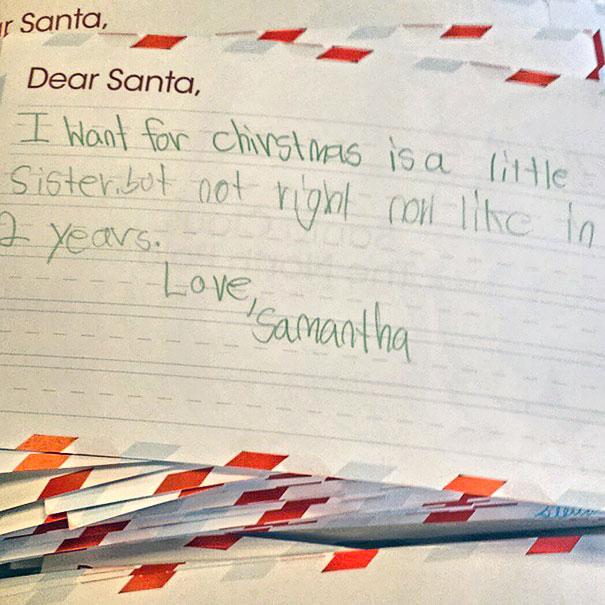 r Santa,
Dear Santa,
I Want for chirstmas is a little
Sister.bot not right now like in
2 years.
Love,
Samantha